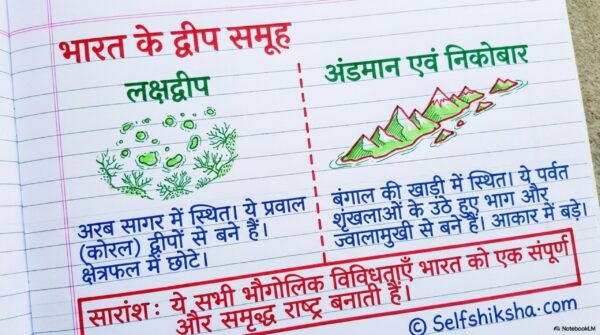 भारत के द्वीप समूह
लक्षद्वीप
अरब सागर में स्थित। ये प्रवाल
(कोरल) द्वीपों से बने हैं।
क्षेत्रफल में छोटे।
अंडमान एवं निकोबार
बंगाल की खाड़ी में स्थित। ये पर्वत
शृंखलाओं के उठे हुए भाग और
ज्वालामुखी से बने हैं। आकार में बड़े।
सारांश: ये सभी भौगोलिक विविधताएँ भारत को एक संपूर्ण
और समृद्ध राष्ट्र बनाती हैं।
© Selfshiksha.com
NotebookLM